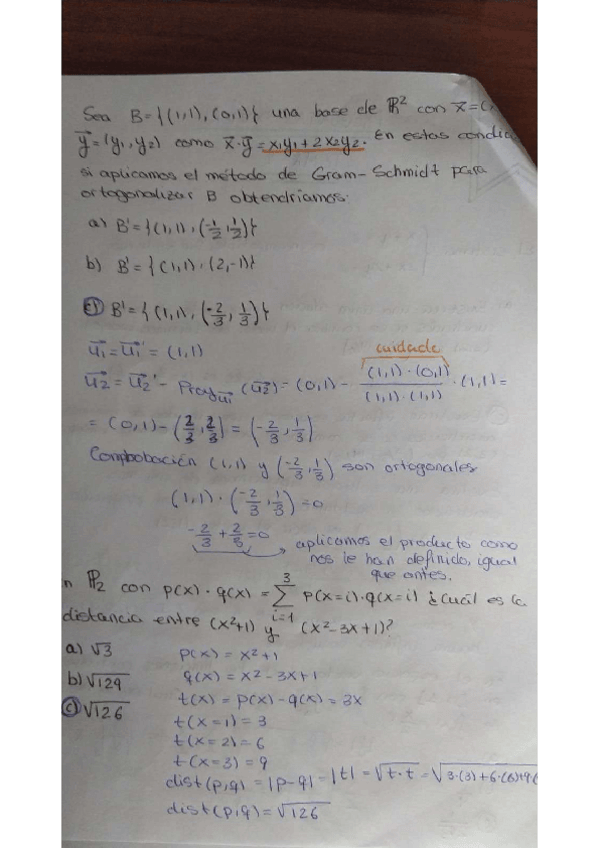 Sea B={(1,1),(0,1)} una base de ℝ² con x⃗=(
y⃗=(y₁,y₂) como x⃗·y⃗=x₁y₁+2x₂y₂. En estas condic
si aplicamos el método de Gram-Schmidt para
ortogonalizar B obtendríamos:
a) B'={(1,1),(-1/2,1/2)}
b) B'={(1,1),(2,-1)}
c) B'={(1,1),(-2/3,1/3)}
cuidado
u₁⃗=u₁⃗'=(1,1)
u₂⃗=u₂⃗'-Proy_u₁⃗(u₂⃗)=(0,1)-(1,1)·(0,1)/(1,1)·(1,1)·(1,1)=
=(0,1)-(2/3,2/3)=(-2/3,1/3)
Comprobación (1,1) y (-2/3,1/3) son ortogonales
(1,1)·(-2/3,1/3)=0
-2/3+2/3=0
aplicamos el producto como
nos le han definido, igual
que antes.
n ℙ₂ con p(x)·q(x)=∑_{i=1}^{3} p(x=i)·q(x=i) ¿cuál es la
distancia entre (x²+1) y (x²-3x+1)?
a) √3
p(x)=x²+1
b) √129
q(x)=x²-3x+1
c) √126
t(x)=p(x)-q(x)=3x
t(x=1)=3
t(x=2)=6
t(x=3)=9
dist(p,q)=|p-q|=|t|=√t·t=√3·(3)+6·(6)+9(
dist(p,q)=√126